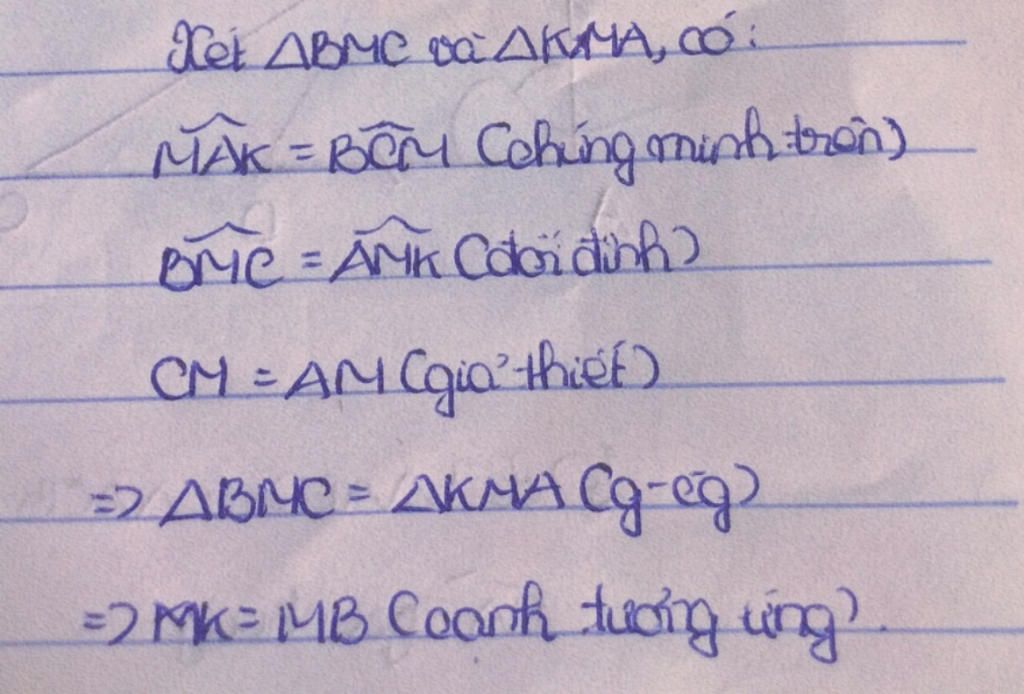 Xét ΔBMC và ΔKMA, có:
MAK = BCM (chứng minh trên)
BMC = AMK (đối đỉnh)
CM = AM (giả thiết)
=> ΔBMC = ΔKMA (g-cg)
=> MK = MB (cạnh tương ứng).